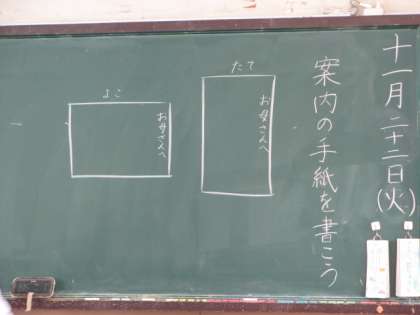 十一月二十二日(火)
案内の手紙を書こう
たて
お母さんへ
よこ
お母さんへ